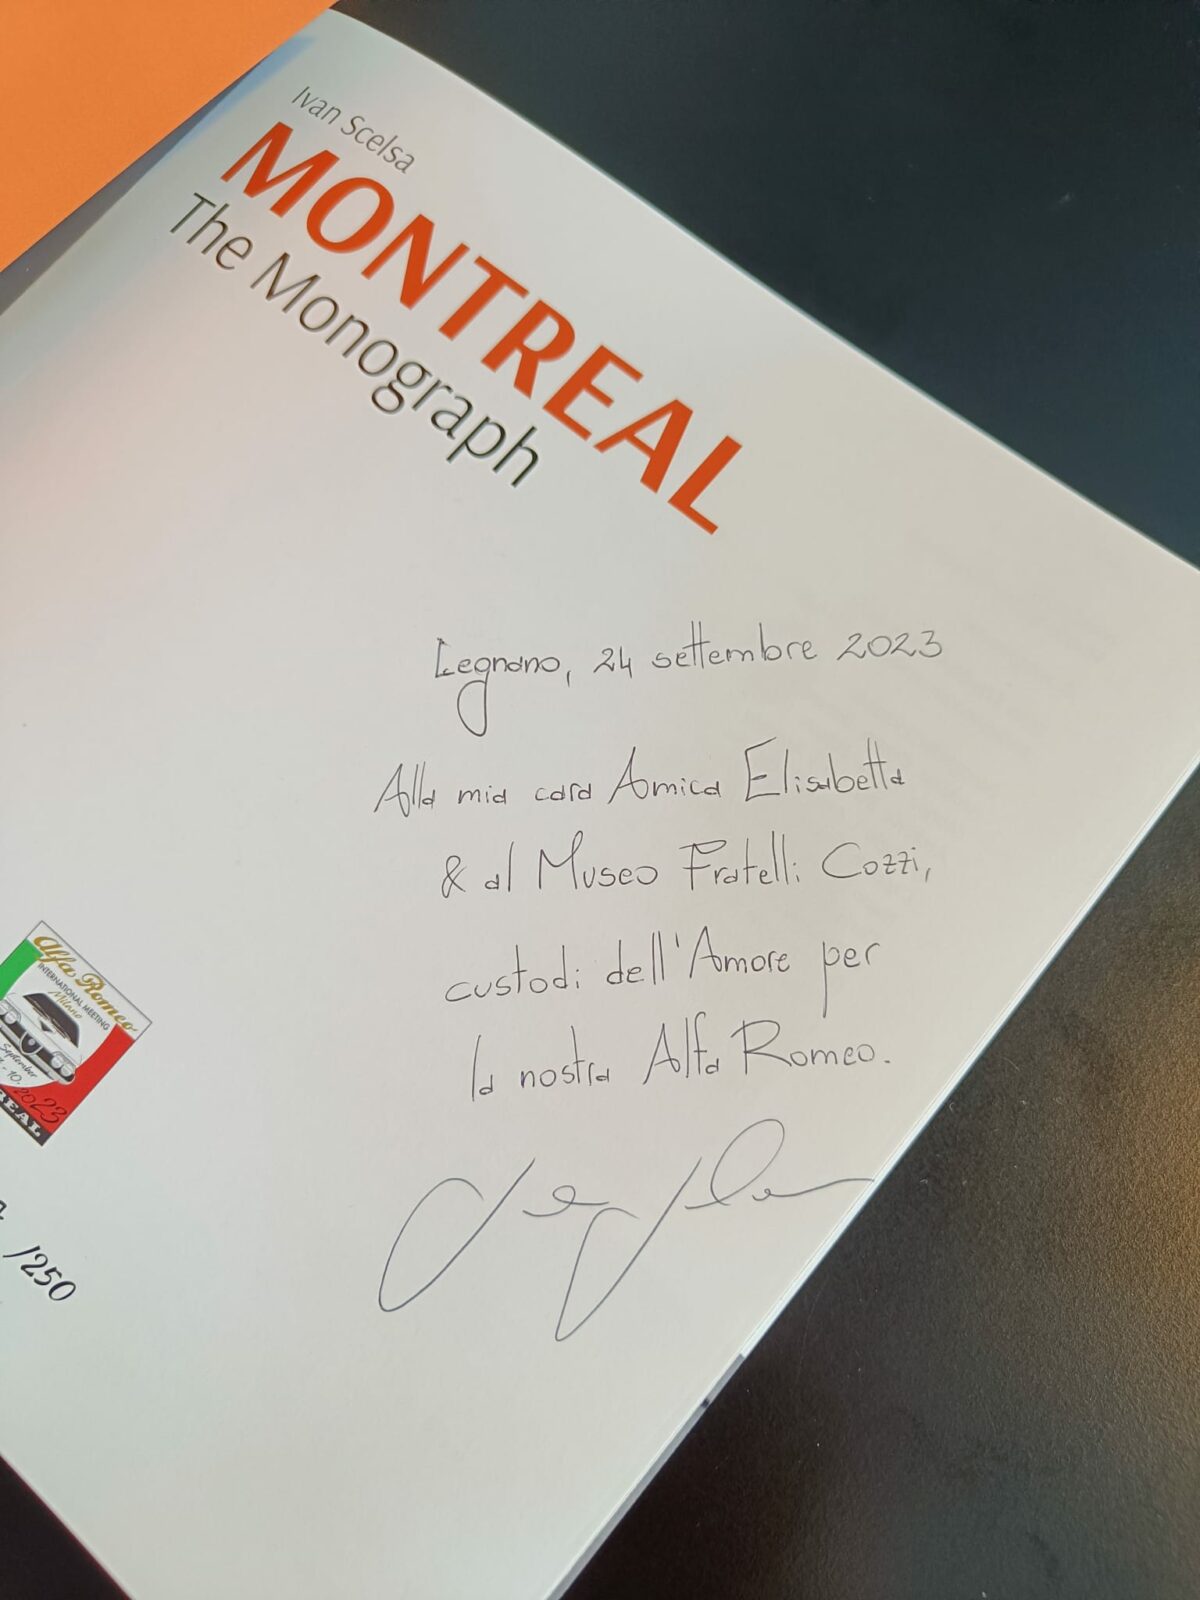 Ivan Scelsa
MONTREAL
The Monograph
Legnano, 24 settembre 2023
Alla mia cara Amica Elisabetta
& al Museo Fratelli Cozzi,
custodi dell'Amore per
la nostra Alfa Romeo.
Alfa Romeo
INTERNATIONAL MEETING
Milano
September
- 10
2023
/250